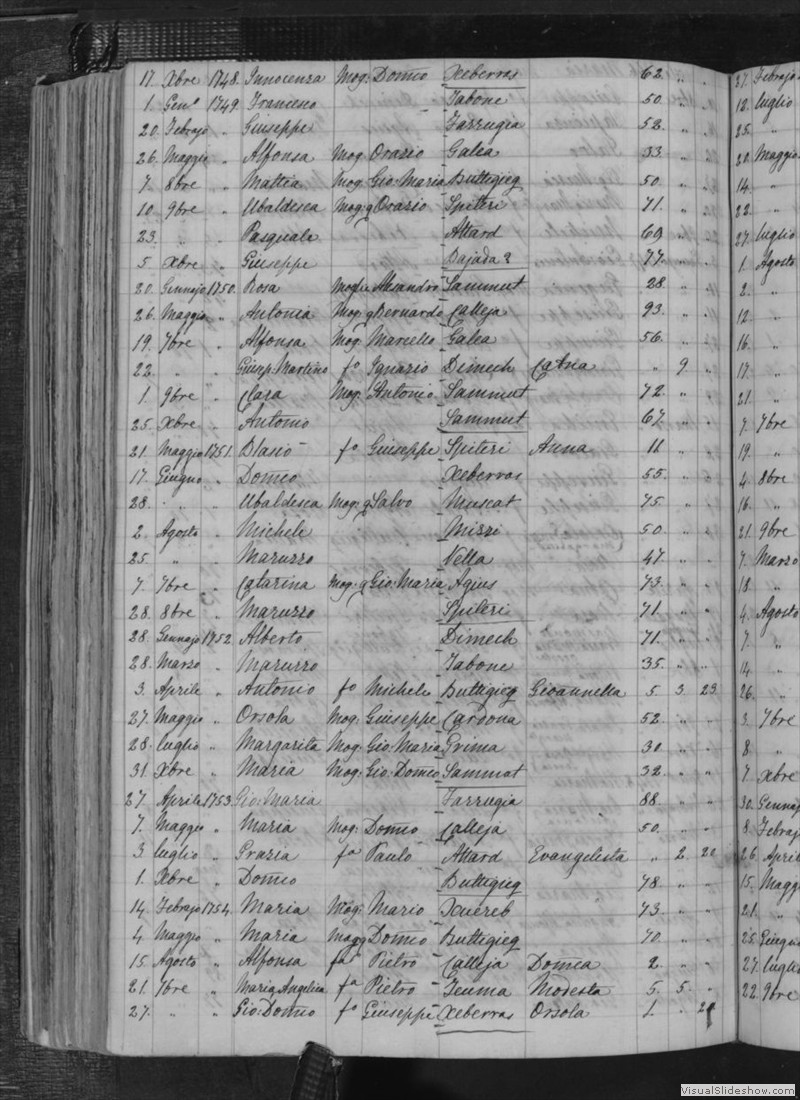 17. Xbre 1748. Innocenza Mog: Domco Xeberras 62. " "
1. Gen° 1749 Francesco Tabone 50. " "
20. Febrajo " Giuseppe Farrugia 52. " "
26. Maggio " Alfonsa Mog: Orazio Galea 33. " "
7. 8bre " Mattia Mog: Gio: Maria Buttigieg 50. " "
10. 9bre " Ubaldesca Mog: q Orazio Spiteri 71. " "
23. " " Pasquale Attard 69. " "
5. Xbre " Giuseppe Bajada? 77. " "
20. Gennajo 1750. Rosa Moglie Alesandro Sammut 28. " "
26. Maggio " Antonia Mog: q Bernardo Calleja 93. " "
19. 7bre " Alfonsa Mog: Marcello Galea 56. " "
22. " " Giusp: Martino fo Ignazio Dimech Catna " 9 "
1. 9bre " Clara Mog: Antonio Sammut 72. " "
25. Xbre " Antonio Sammut 67. " "
21. Maggio 1751. Blasio fo Giuseppe Spiteri Anna 11 " "
17. Giugno " Domco Xeberras 55. " "
28. " " Ubaldesca Mog: q Salvo Muscat 75. " "
2. Agosto " Michele Mizzi 50. " "
25. " " Maruzzo Vella 47. " "
7. 7bre " Catarina Mog: q Gio: Maria Agius 73. " "
28. 8bre " Maruzzo Spiteri 71. " "
28. Gennajo 1752. Alberto Dimech 71. " "
28. Marzo " Maruzzo Tabone 35. " "
3. Aprile " Antonio fo Michele Buttigieg Gioannella 5 3 23
27. Maggio " Orsola Mog: Giuseppe Cardona 52. " "
28. luglio " Margarita Mog: Gio: Maria Grima 30. " "
31 Xbre " Maria Mog: Gio: Domco Sammut 32. " "
27 Aprile 1753. Gio: Maria Farrugia 88. " "
7. Maggio " Maria Mog: Domco Calleja 50. " "
3 luglio " Grazia fa Paulo Attard Evangelista " 2 20
1. Xbre " Domco Buttigieg 78. " "
14. Febrajo 1754. Maria Mog: Mario Xuereb 73. " "
4. Maggio " Maria Mog q Domco Buttigieg 70. " "
15 Agosto " Alfonsa fa Pietro Calleja Domca 2. " "
21. 7bre " Maria Angelica fa Pietro Zeuma Modesta 5. 5 "
27. " " Gio: Domco fo Giuseppe Xeberras Orsola 1. "
27. Febrajo
12. luglio
25. "
20. Maggio
14. "
22. "
27. luglio
1. Agosto
2. "
12. "
16. "
17. "
21. "
7. 7bre
19. "
4. 8bre
16. "
21. 9bre
7. Marzo
18. "
4. Agosto
7. "
14. "
26. "
3. 7bre
8. "
7. Xbre
30. Gennaj
8. Febraj
26. April
15. Magg
21. "
25. Giugno
27. luglio
22. 9bre
VisualSlideshow.com